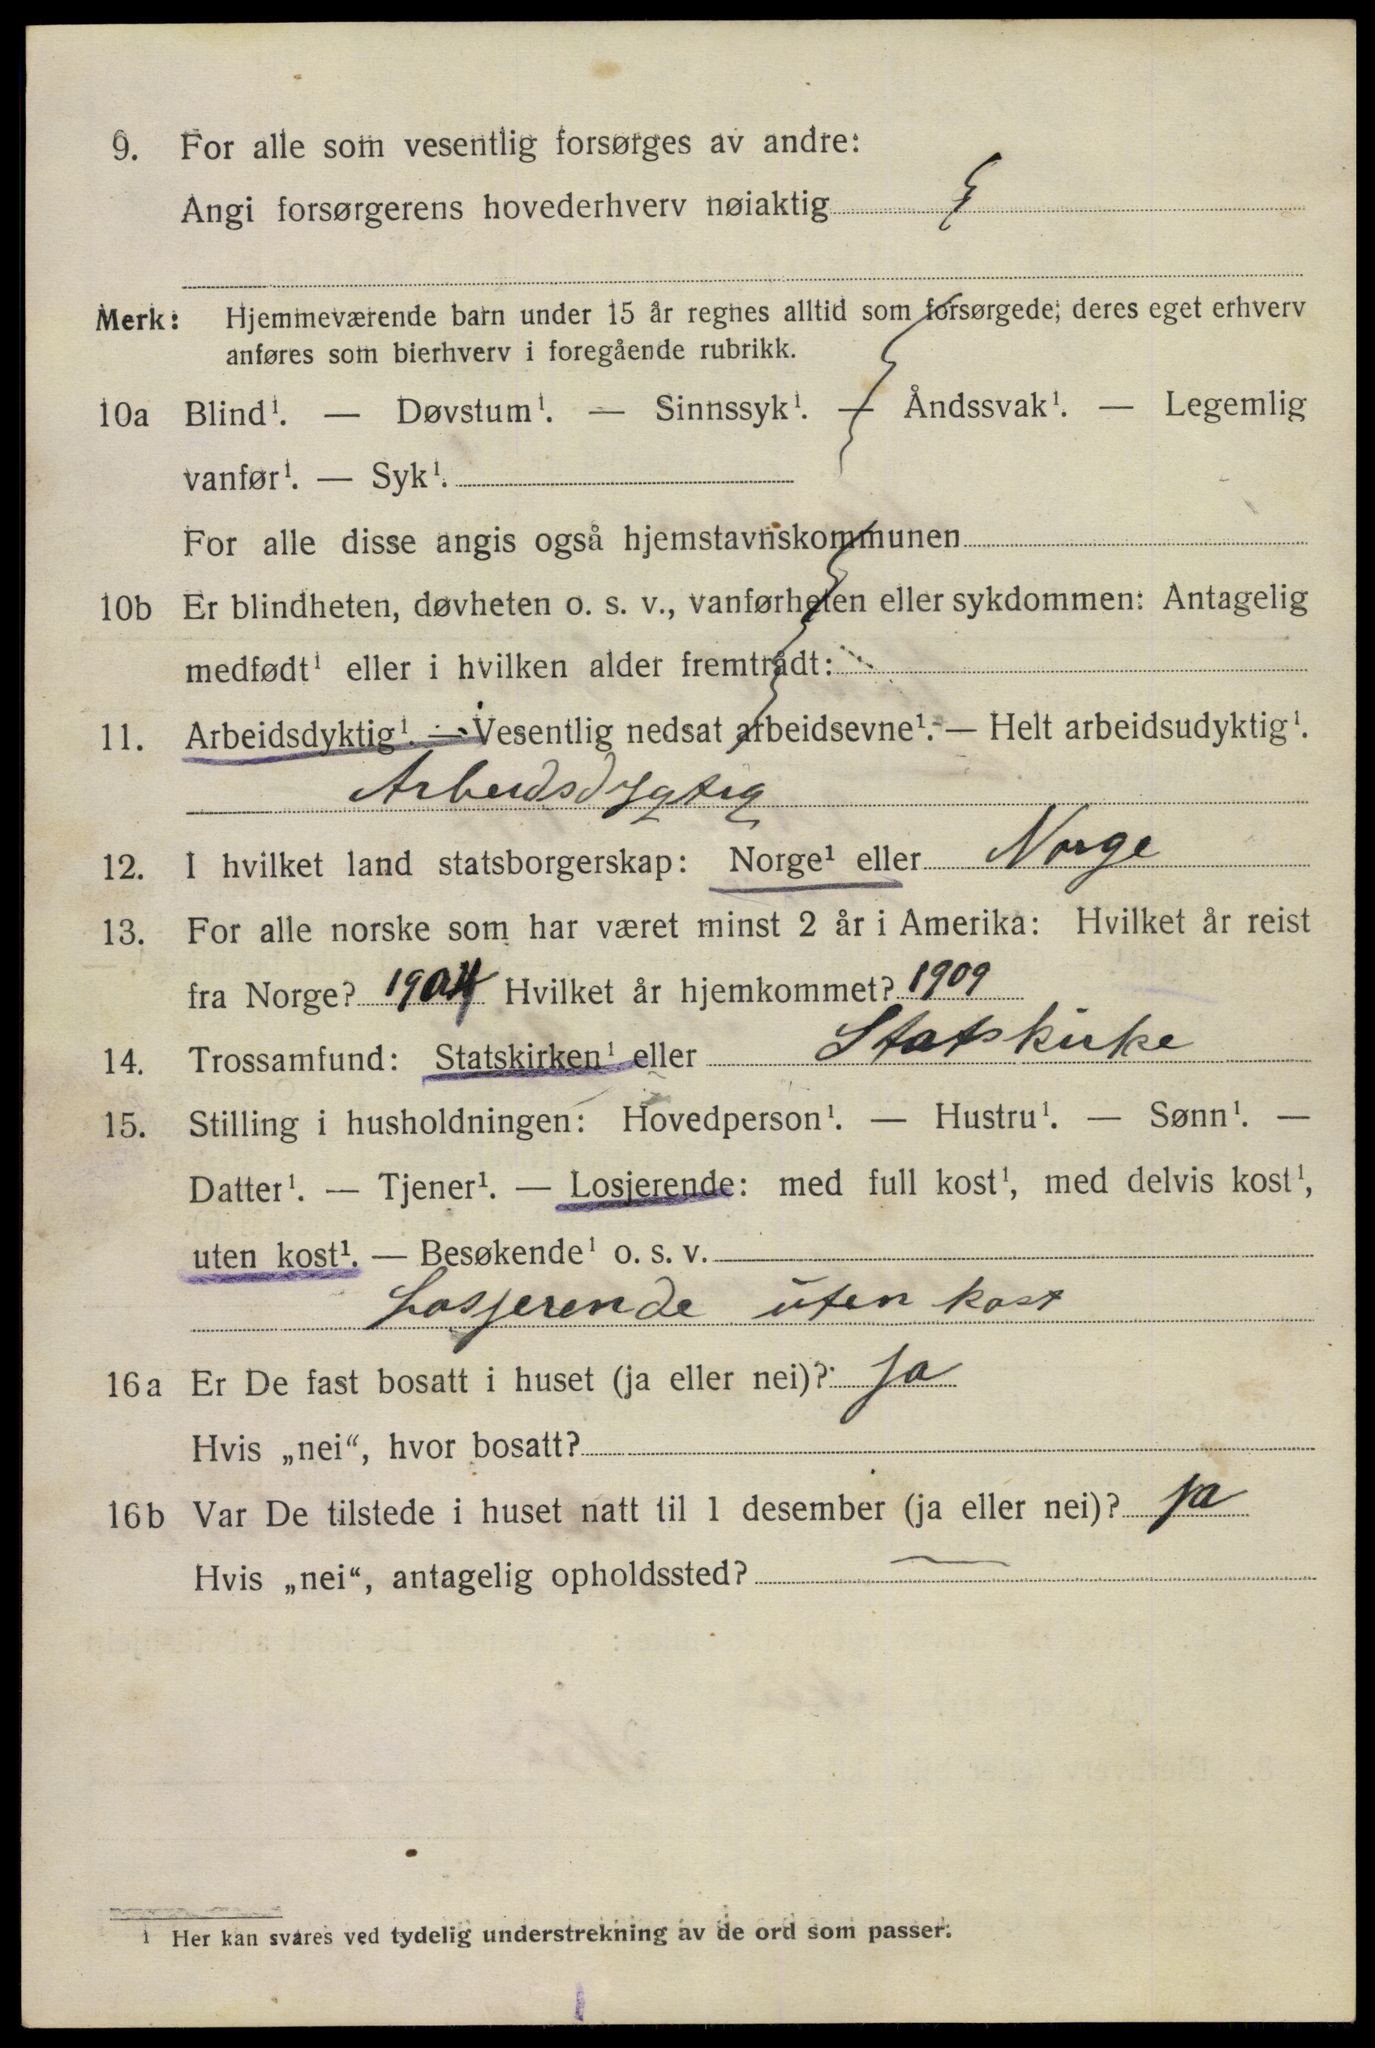 9. For alle som vesentlig forsørges av andre:
Angi forsørgerens hovederhverv nøiaktig
Merk: Hjemmeværende barn under 15 år regnes alltid som forsørgede; deres eget erhverv
anføres som bierhverv i foregående rubrikk.
10a Blind¹. — Døvstum¹. — Sinnssyk¹. — Åndssvak¹. — Legemlig
vanfør¹. — Syk¹.
For alle disse angis også hjemstavnskommunen
10b Er blindheten, døvheten o. s. v., vanførheten eller sykdommen: Antagelig
medfødt¹ eller i hvilken alder fremtrådt:
11. Arbeidsdyktig¹. — Vesentlig nedsat arbeidsevne¹. — Helt arbeidsudyktig¹.
Arbeidsdygtig
12. I hvilket land statsborgerskap: Norge¹ eller Norge
13. For alle norske som har været minst 2 år i Amerika: Hvilket år reist
fra Norge? 1904 Hvilket år hjemkommet? 1909
14. Trossamfund: Statskirken¹ eller Statskirke
15. Stilling i husholdningen: Hovedperson¹. — Hustru¹. — Sønn¹. —
Datter¹. — Tjener¹. — Losjerende: med full kost¹, med delvis kost¹,
uten kost¹. — Besøkende¹ o. s. v.
Losjerende uten kost
16a Er De fast bosatt i huset (ja eller nei)? Ja
Hvis „nei“, hvor bosatt?
16b Var De tilstede i huset natt til 1 desember (ja eller nei)? ja
Hvis „nei“, antagelig opholdssted? —
¹ Her kan svares ved tydelig understrekning av de ord som passer.